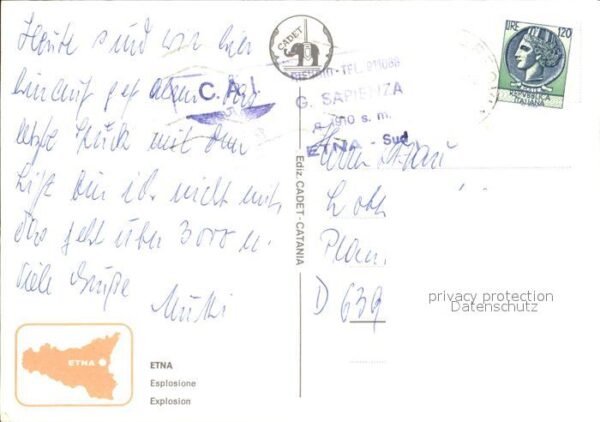 Heute sind wir hier
hinauf gef
letzte Stück mit dem
Lift bin ich nicht mit,
das geht über 3000 m.
Viele Grüße
Mutti
CADET
C.A.I.
TEL. 911068
G. SAPIENZA
a 1910 s. m.
ETNA - Sud
LIRE 120
REPUBBLICA
ITALIANA
Herrn
Plan
D 639
Ediz. CADET - CATANIA
privacy protection
Datenschutz
ETNA
ETNA
Esplosione
Explosion